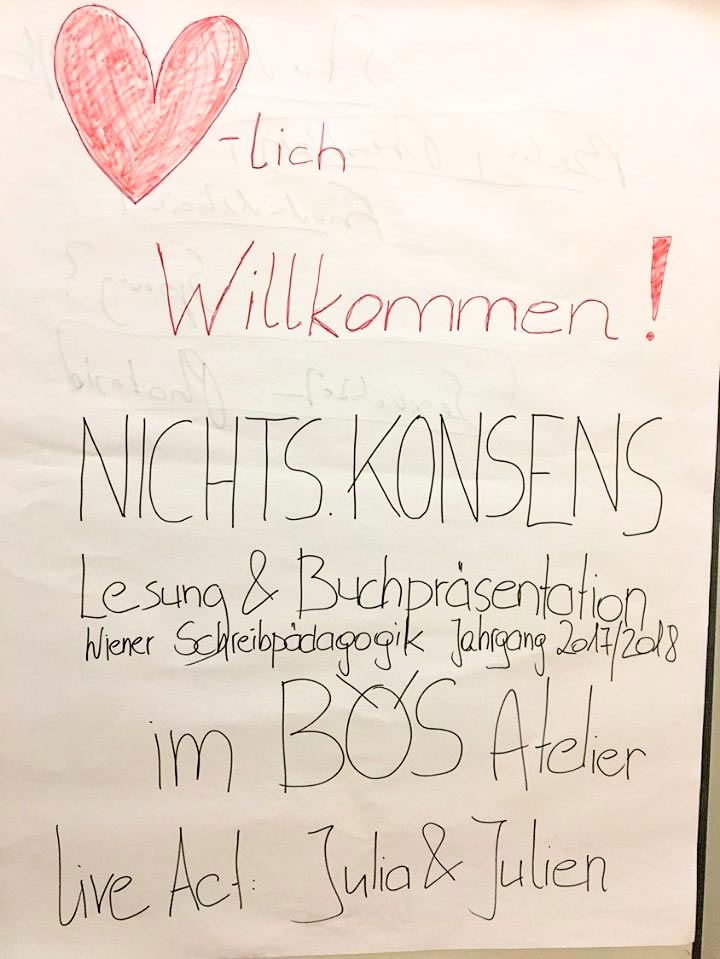 -lich
Willkommen!
NICHTS.KONSENS
Lesung & Buchpräsentation
Wiener Schreibpädagogik Jahrgang 2017/2018
im BÖS Atelier
Live Act: Julia & Julien